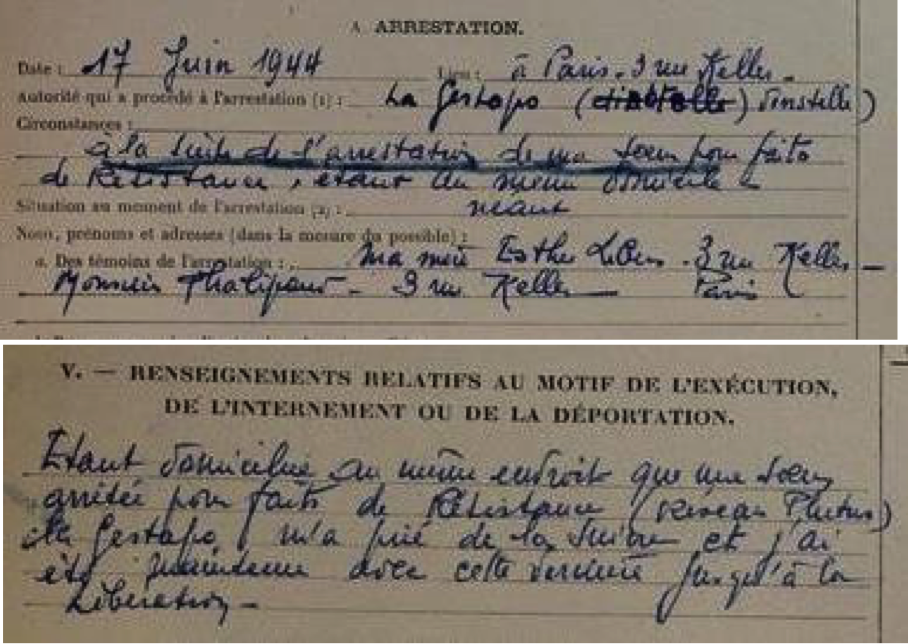 A ARRESTATION.
Date : 17 Juin 1944 Lieu : à Paris. 3 rue Keller -
Autorité qui a procédé à l'arrestation (1) : La Gestapo ( )
Circonstances :
à la suite de l'arrestation de ma soeur pour faits
de Résistance, étant au même domicile -
Situation au moment de l'arrestation (2) : néant
Noms, prénoms et adresses (dans la mesure du possible) :
a. Des témoins de l'arrestation : Ma mère Esther - 3 rue Keller -
Monsieur - 3 rue Keller Paris
V. — RENSEIGNEMENTS RELATIFS AU MOTIF DE L'EXÉCUTION,
DE L'INTERNEMENT OU DE LA DÉPORTATION.
Etant domiciliée au même endroit que ma soeur
arrêtée pour faits de Résistance (Réseau Plutus)
la Gestapo m'a prié de la suivre et j'ai
été maintenue avec cette dernière jusqu'à la
Libération -